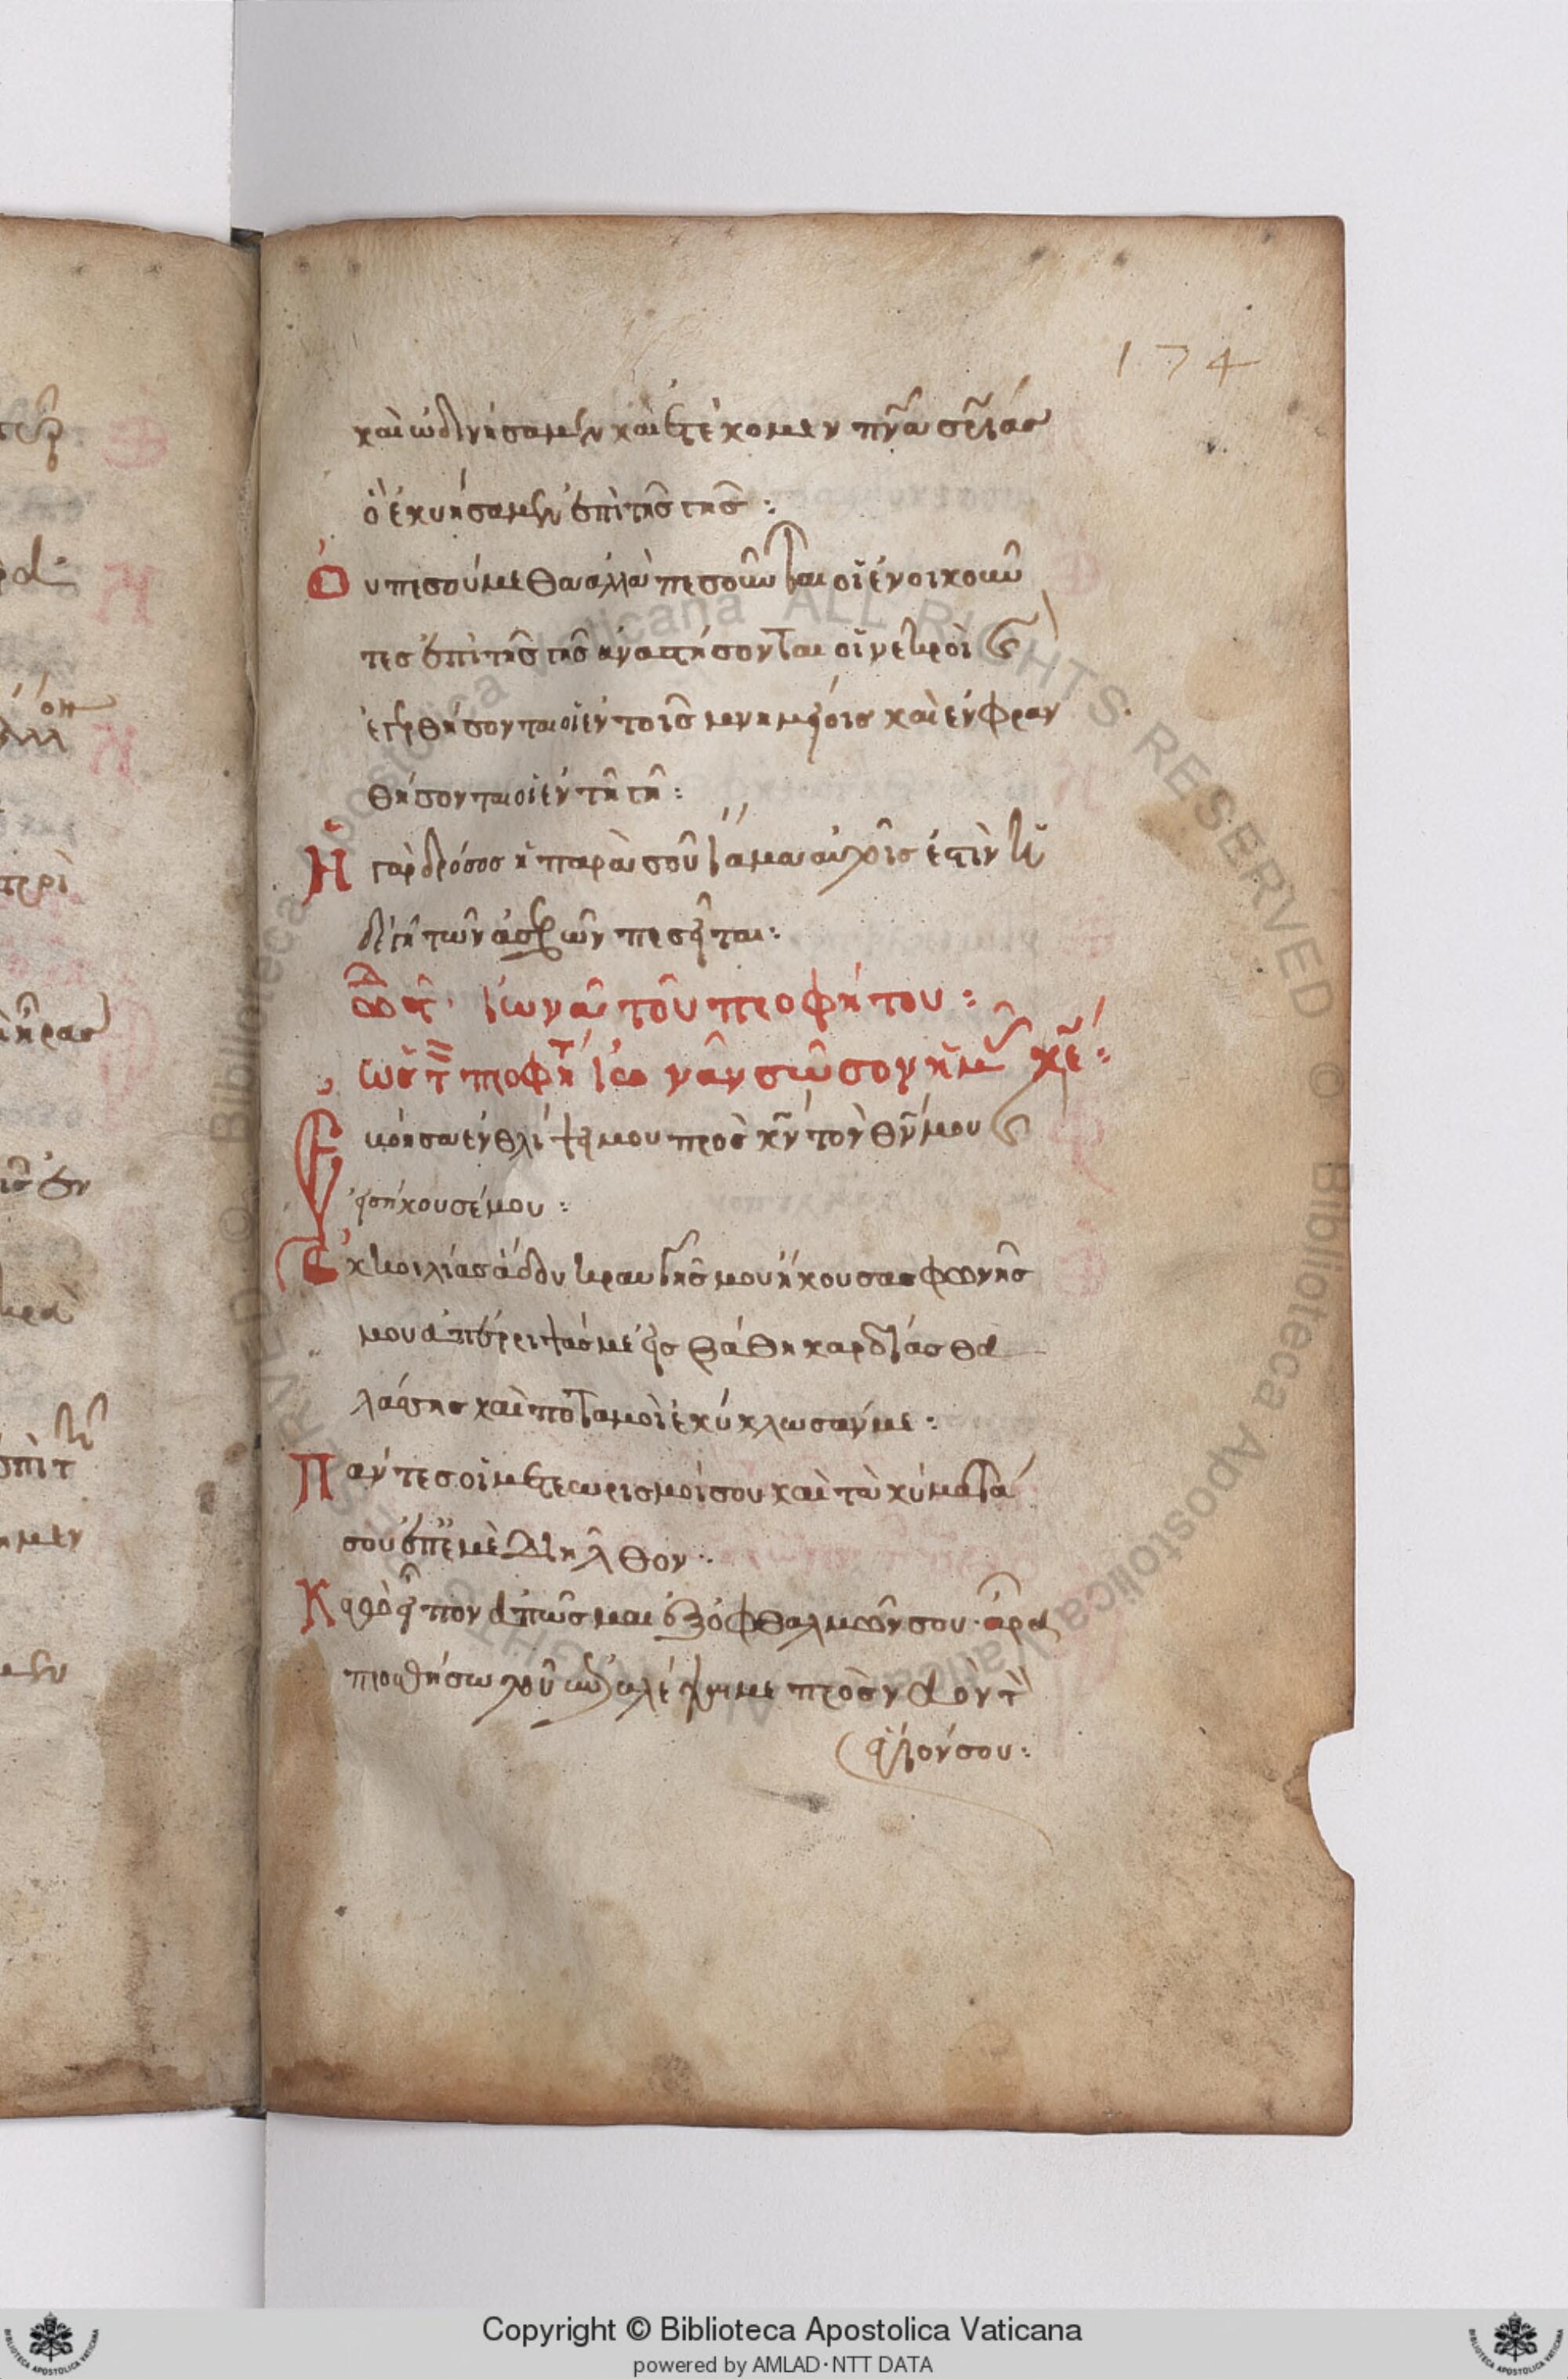 174
καὶ ὠδινήσαμεν καὶ ἐτέκομεν πνᾶ σρίας
ὃ ἐκυήσαμεν ἐπὶ τῆς γῆς:
Οὐ πεσούμεθα ἀλλὰ πεσοῦνται οἱ ἐνοικοῦν
τες ἐπὶ τῆς γῆς ἀναστήσονται οἱ νεκροὶ καὶ
ἐγερθήσονται οἱ ἐν τοῖς μνημείοις καὶ εὐφραν
θήσονται οἱ ἐν τῇ γῇ:
Ἡ γὰρ δρόσος ἡ παρὰ σοῦ ἴαμα αὐτοῖς ἐστὶν ἡ
δὲ γῆ τῶν ἀσεβῶν πεσεῖται:
ᾠδὴ ϛ΄ Ἰωνᾶ τοῦ προφήτου:
ὡς τ προφη Ἰωνᾶν σῶσον ἡμᾶς κε:
Ἐβόησα ἐν θλίψει μου πρὸς κν τὸν θν μου καὶ
εἰσήκουσέ μου:
Ἐκ κοιλίας ἅδου κραυγῆς μου ἤκουσας φωνῆς
μου ἀπέρριψάς με εἰς βάθη καρδίας θα
λάσσης καὶ ποταμοὶ ἐκύκλωσάν με:
Πάντες οἱ μετεωρισμοί σου καὶ τὰ κύματά
σου ἐπ' ἐμὲ διῆλθον:
Καγὼ εἶπον ἀπῶσμαι ἐξ ὀφθαλμῶν σου. ἆρα
προσθήσω τοῦ ἐπιβλέψαι με πρὸς ναὸν τὸν
ἅγιόν σου:
Copyright © Biblioteca Apostolica Vaticana
powered by AMLAD·NTT DATA